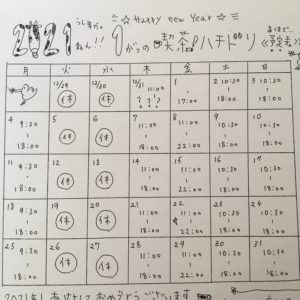 2021 うし年だ。 ねん!! ☆ Happy new Year ☆
1がつの喫茶ハチドリ 《予定表》
月 火 水 木 金 土 日
12/29 休 12/30 休 12/31 11:00 ? ? ? 1 17:00 2 10:30 18:00 3 10:30 18:00
4 9:30 18:00 5 休 6 休 7 11:00 18:00 8 11:00 22:00 9 10:30 18:00 10 10:30 18:00
11 9:30 18:00 12 休 13 休 14 11:00 18:00 15 11:00 22:00 16 10:30 18:00 17 10:30 18:00
18 9:30 18:00 19 休 20 休 21 11:00 18:00 22 11:00 22:00 23 10:30 18:00 24 10:30 18:00
25 9:30 18:00 26 休 27 休 28 11:00 18:00 29 11:00 22:00 30 10:30 18:00 31 10:30 18:00
2021年もあけましておめでとうございます